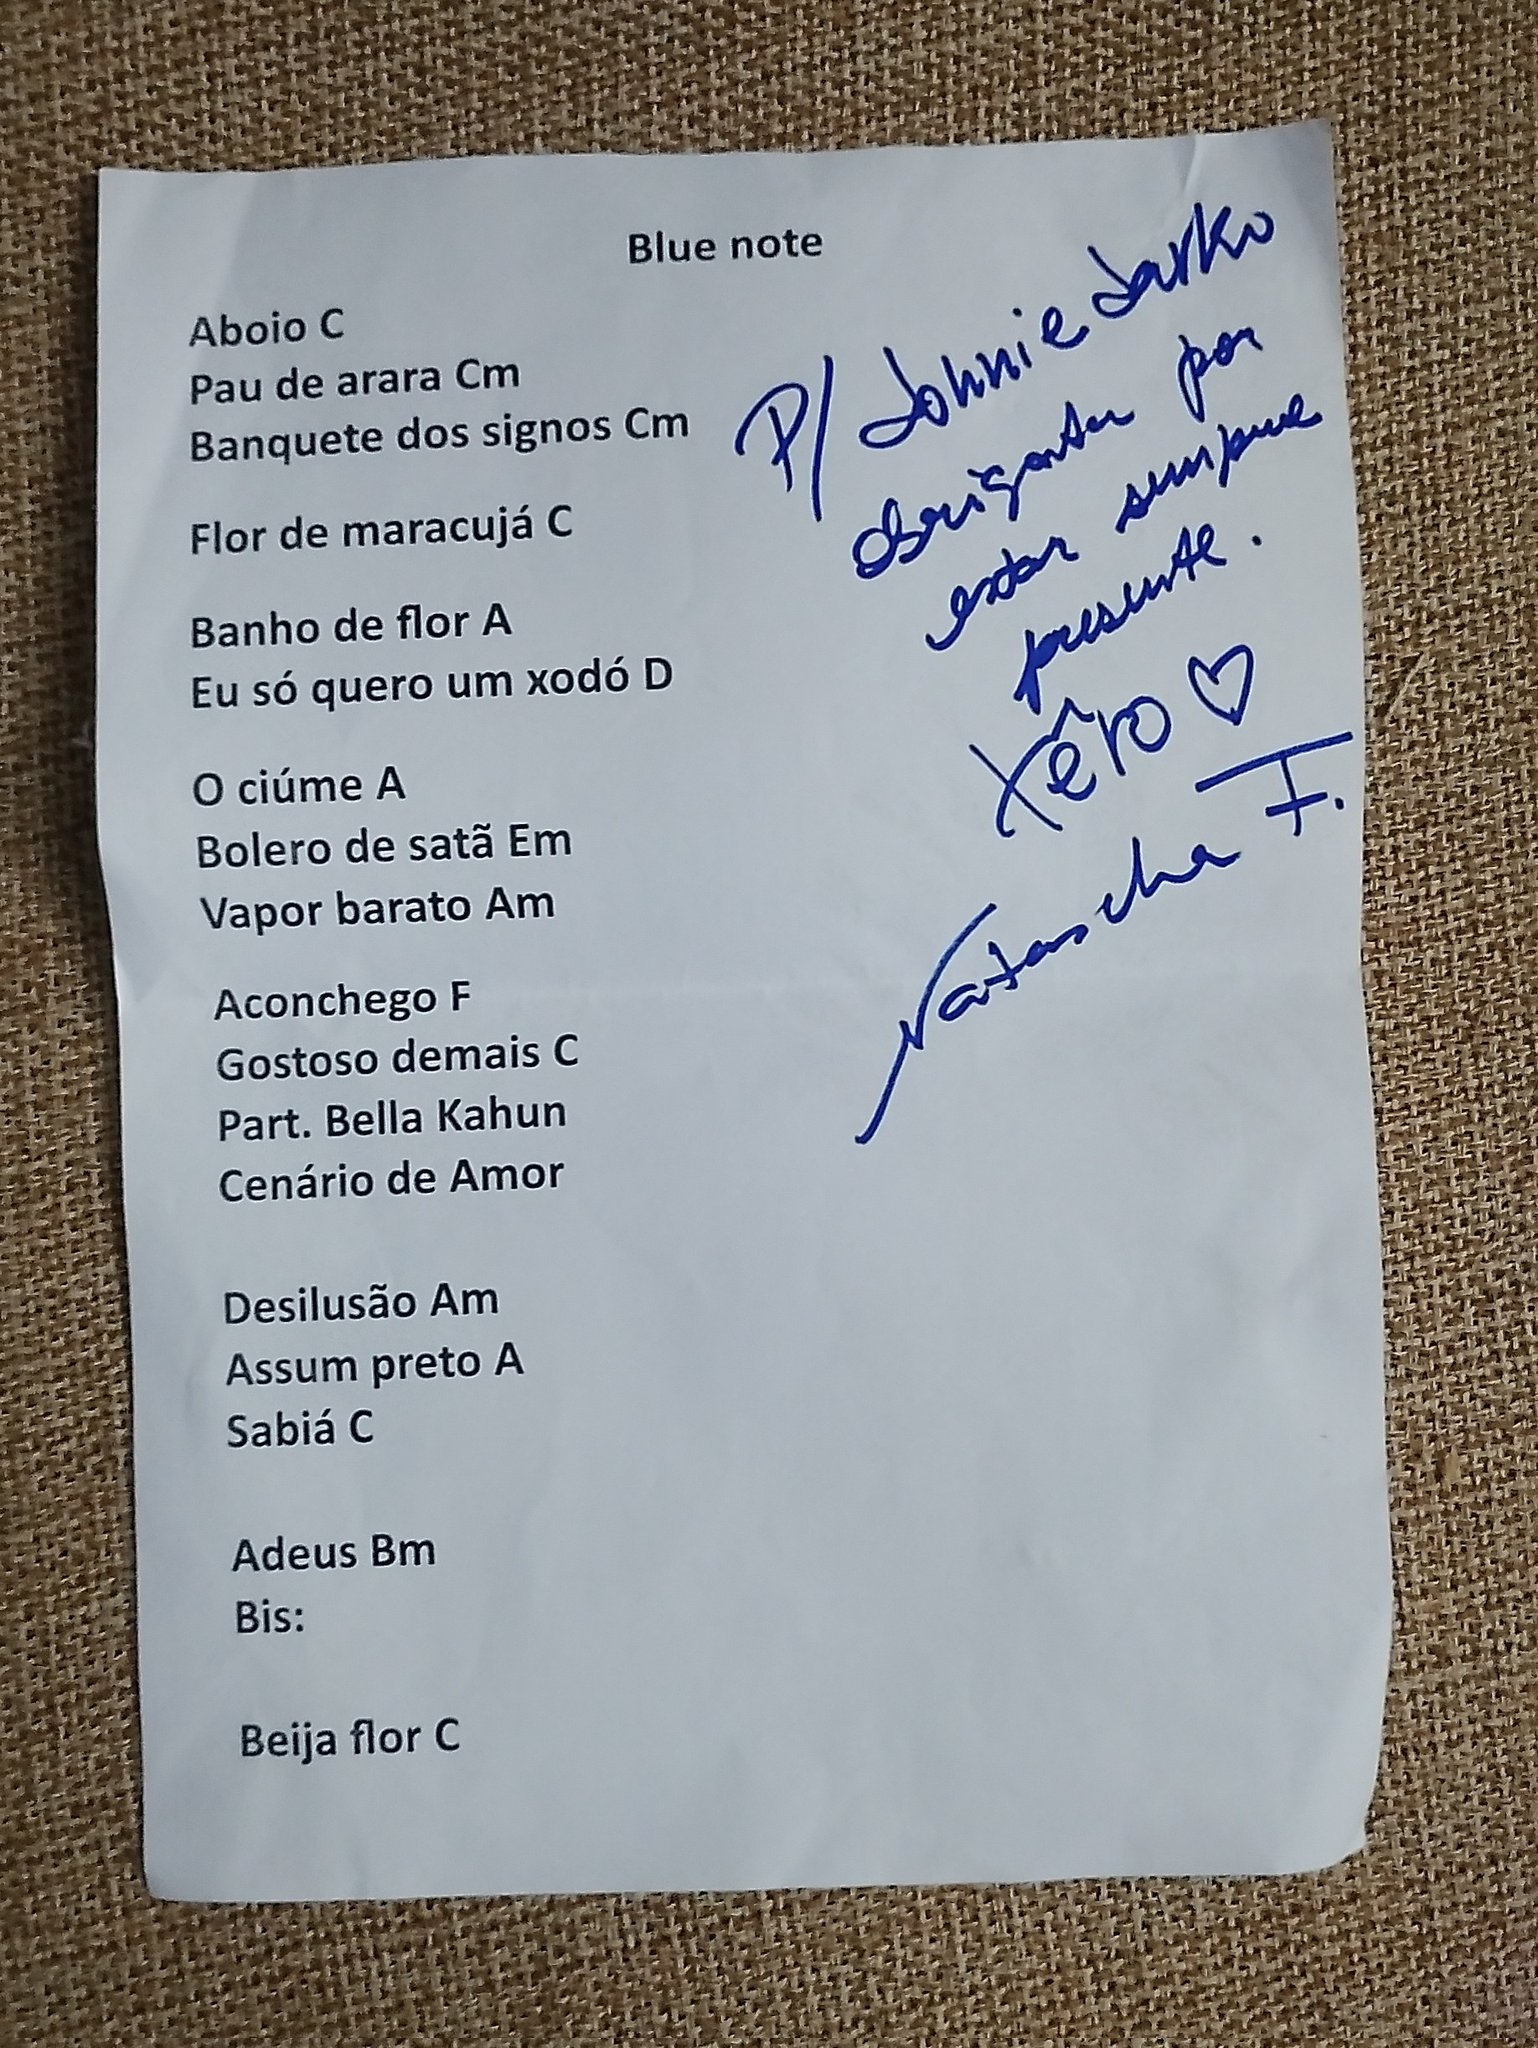 Blue note
Aboio C
Pau de arara Cm
Banquete dos signos Cm
Flor de maracujá C
Banho de flor A
Eu só quero um xodó D
O ciúme A
Bolero de satã Em
Vapor barato Am
Aconchego F
Gostoso demais C
Part. Bella Kahun
Cenário de Amor
Desilusão Am
Assum preto A
Sabiá C
Adeus Bm
Bis:
Beija flor C
P/ Johnie Darko
obrigada por
estar sempre
presente.
Xêro ♡
Natascha F.